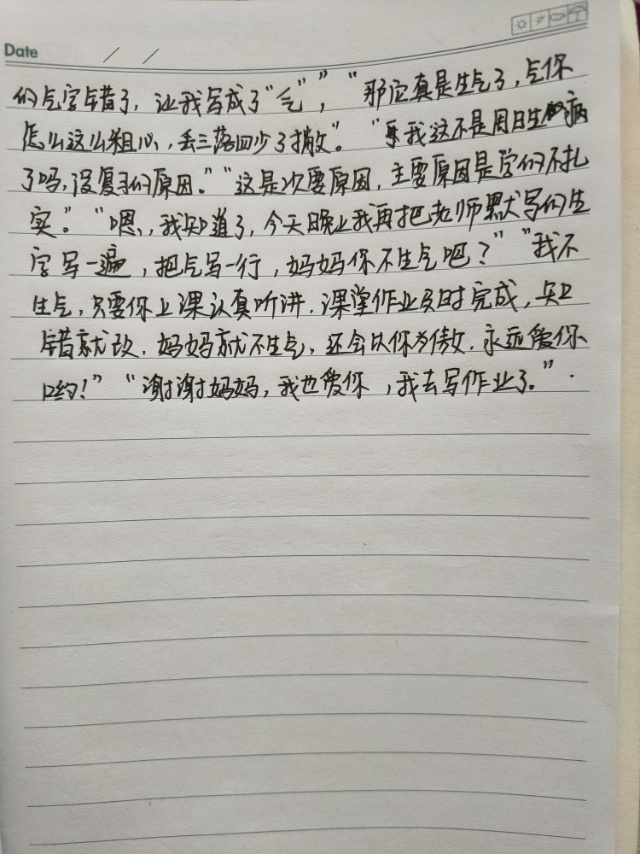 Date / /
的气字错了，让我写成了“乞””，“那它真是生气了，气你
怎么这么粗心，丢三落四少了撇”。“我这不是周日生病
了吗，没复习的原因。”“这是次要原因，主要原因是学的不扎
实。”“嗯，我知道了，今天晚上我再把老师默写的生
字写一遍，把气写一行，妈妈你不生气吧？”“我不
生气，只要你上课认真听讲，课堂作业及时完成，知
错就改，妈妈就不生气，还会以你为傲，永远爱你
哟！”“谢谢妈妈，我也爱你，我去写作业了。”